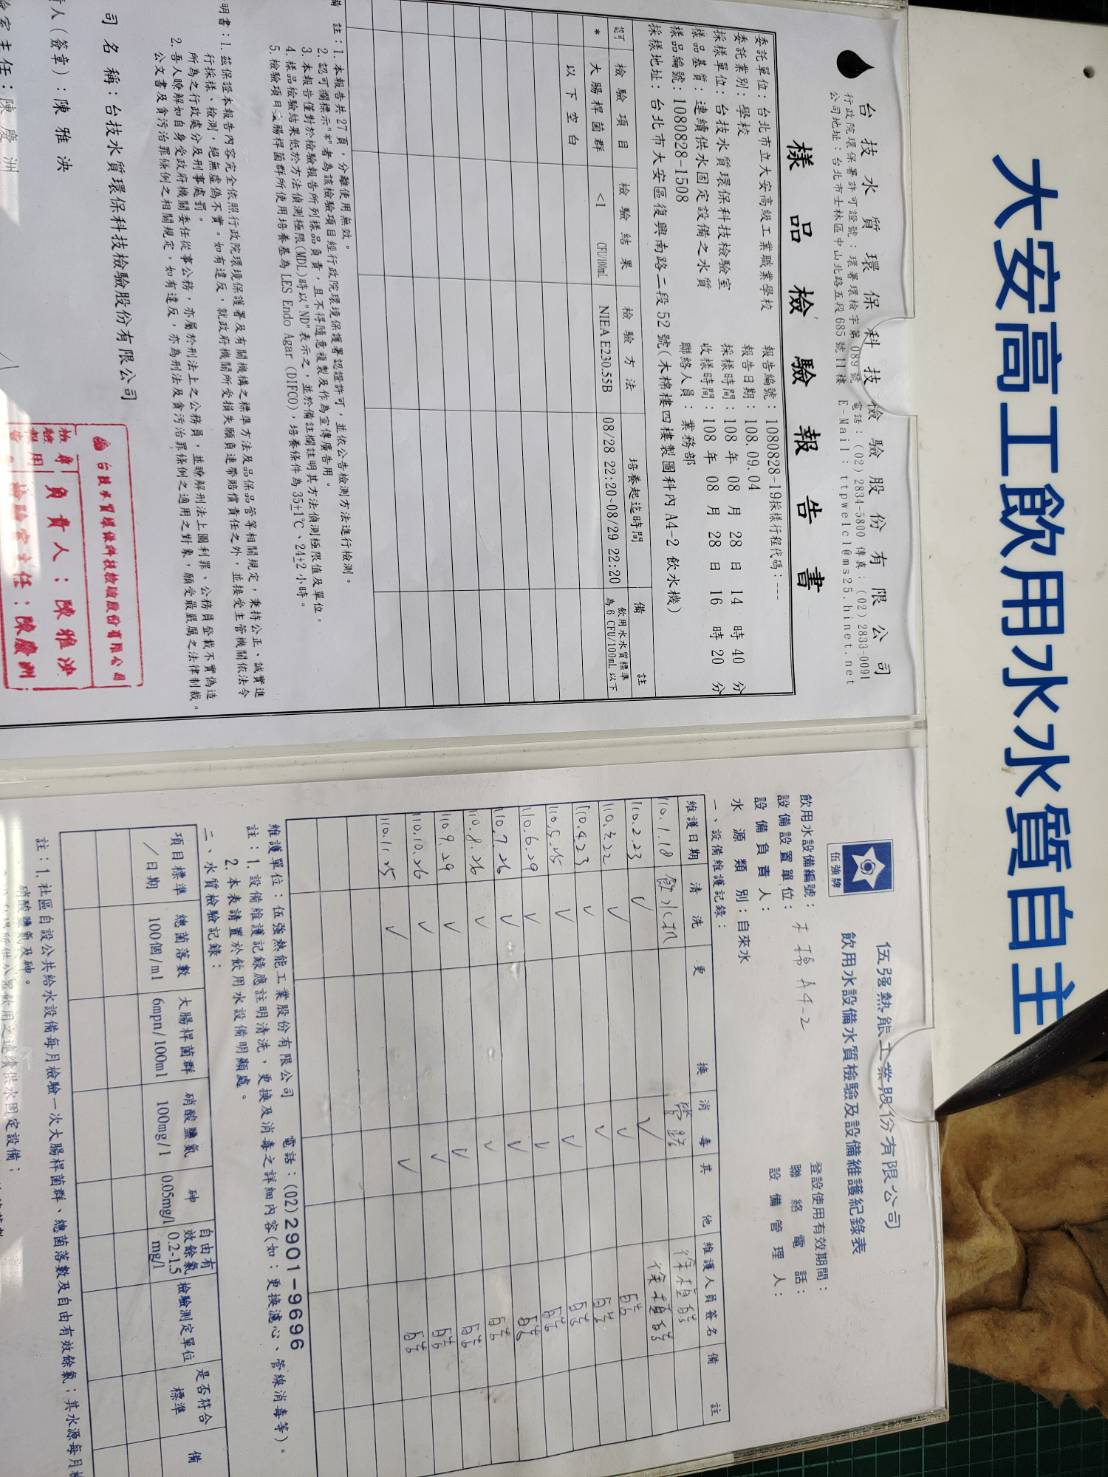 大安高工飲用水水質自主
台技水質環保科技檢驗股份有限公司
行政院環保署許可證號：環署環檢字第089號 電話：(02)2834-5800 傳真：(02)2833-0091
公司地址：台北市士林區中山北路五段685號11樓 E-Mail：ttpwelc1@ms25.hinet.net
樣品檢驗報告書
委託單位：台北市立大安高級工業職業學校 報告編號：1080828-19採樣行程代碼：---
委託業別：學校 報告日期：108.09.04
採樣單位：台技水質環保科技檢驗室 採樣時間：108 年 08 月 28 日 14 時 40 分
樣品基質：連續供水固定設備之水質 收樣時間：108 年 08 月 28 日 16 時 20 分
樣品編號：1080828-1508 聯絡人員：業務部
採樣地址：台北市大安區復興南路二段52號(木棉樓四樓製圖科內 A4-2 飲水機)
認可 檢驗項目 檢驗結果 檢驗方法 培養起迄時間 備註
* 大腸桿菌群 <1 CFU/100mL NIEA E230.55B 08/28 22:20~08/29 22:20 飲用水水質標準為6 CFU/100mL以下
以下空白
備註：1. 本報告共27頁，分離使用無效。
2. 認可欄標示"*"者為該檢驗項目經行政院環境保護署認證許可，並依公告檢測方法進行檢測。
3. 本報告僅對於檢驗報告所列樣品負責，且不得隨意複製及作為宣傳廣告用。
4. 樣品檢驗結果低於方法偵測極限(MDL)時以"ND"表示之，並於備註欄註明其方法偵測極限值及單位。
5. 檢驗項目:大腸桿菌群所使用培養基為LES Endo Agar (DIFCO)，培養條件為35±1℃、24±2小時。
明書：1. 茲保證本報告內容完全依照行政院環境保護署及有關機構之標準方法及品保品管等相關規定，秉持公正、誠實進
行採樣、檢測，絕無虛偽不實，如有違反，就政府機關所受損失願負連帶賠償責任之外，並接受主管機關依法令
所為之行政處分及刑事處罰。
2. 吾人瞭解如自身受政府機關委任從事公務，亦屬於刑法上之公務員，並瞭解刑法上圖利罪、公務員登載不實偽造
公文書及貪污治罪條例之相關規定，如有違反，亦為刑法及貪污治罪條例之適用之對象，願受嚴厲之法律制裁。
司名稱：台技水質環保科技檢驗股份有限公司
人(簽章)：陳雅泱
主任：陳慶洲
台技水質環保科技檢驗股份有限公司
負責人：陳雅泱
檢驗室主任：陳慶洲
伍強牌
伍強熱能工業股份有限公司
飲用水設備水質檢驗及設備維護紀錄表
飲用水設備編號： 登設使用有效期間：
設備設置單位：木棉A4-2 聯絡電話：
設備負責人： 設備管理人：
水源類別：自來水
一、設備維護記錄：
維護日期 清洗 更換 消毒 其他 維護人員簽名 備註
110.1.18 飲水机
110.2.23 ✓ ✓
110.3.22 ✓ ✓
110.4.23 ✓ ✓
110.5.25 ✓ ✓
110.6.29 ✓ ✓
110.7.26 ✓ ✓
110.8.26 ✓ ✓
110.9.29 ✓ ✓
110.10.26 ✓ ✓
110.11.25 ✓ ✓
維護單位：伍強熱能工業股份有限公司 電話：(02)2901-9696
註：1. 設備維護記錄應註明清洗，更換及消毒之詳細內容(如：更換濾心、管線消毒等)。
2. 本表請置於飲用水設備明顯處。
二、水質檢驗記錄：
項目標準／日期 總菌落數 100個/ml 大腸桿菌群 6mpn/100ml 硝酸鹽氮 100mg/l 砷 0.05mg/l 自由有效餘氯 0.2-1.5 mg/l 檢驗測定單位 是否符合標準 備
註：1. 社區自設公共給水設備每月檢驗一次大腸桿菌群、總菌落數及自由有效餘氯；其水源每月檢
硝酸鹽氮及砷。